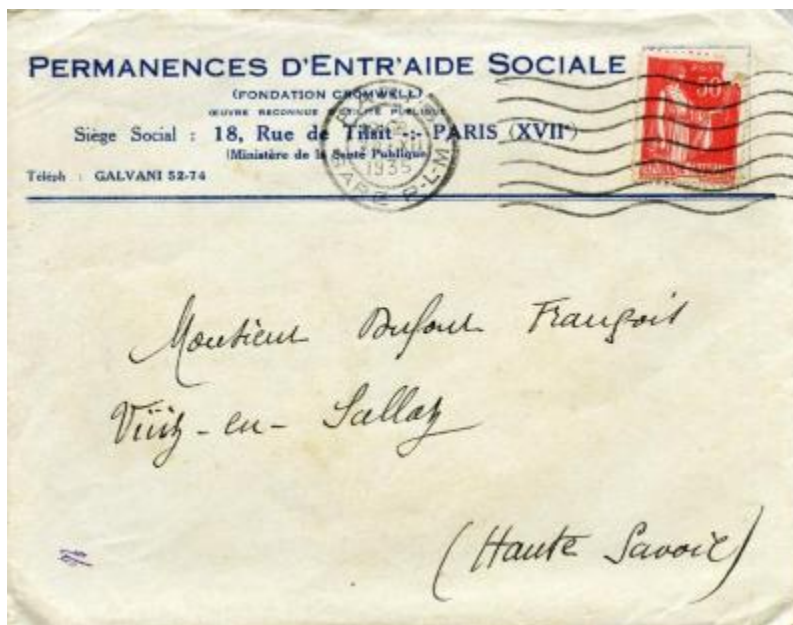 PERMANENCES D'ENTR'AIDE SOCIALE
(FONDATION CROMWELL)
ŒUVRE RECONNUE D'UTILITÉ PUBLIQUE
Siège Social : 18, Rue de Tilsit -:- PARIS (XVIIe)
(Ministère de la Santé Publique)
Téléph : GALVANI 52-74
1935
GARE P-L-M
50
Monsieur Dufour François
Viüz-en-Sallaz
(Haute Savoie)